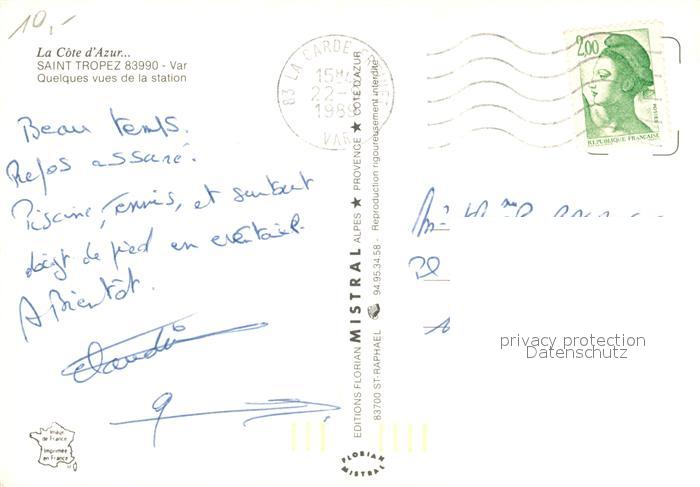 10,-
La Côte d'Azur...
SAINT TROPEZ 83990 - Var
Quelques vues de la station
Beau temps.
Repos assuré.
Piscine, Tennis, et surtout
doigt de pied en éventail.
A Bientôt.
83 LA GARDE FREINET
22-
1989
VAR
2,00
REPUBLIQUE FRANÇAISE
EDITIONS FLORIAN MISTRAL ALPES ★ PROVENCE ★ COTE D'AZUR
83700 ST-RAPHAEL 94.95.34.58 - Reproduction rigoureusement interdite
privacy protection
Datenschutz
Imprimée
en France
FLORIAN
MISTRAL